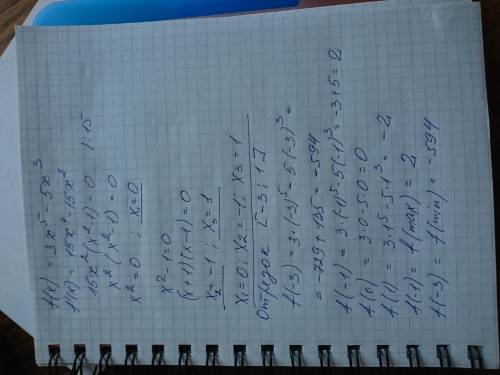 f(x) = 3x⁵ - 5x³
f(x) = 15x⁴ - 15x²
15x²(x²-1) = 0 | : 15
x²(x²-1) = 0
x² = 0 ; x₁ = 0
x² - 1 = 0
(x+1)(x-1) = 0
x₂ = -1 ; x₃ = 1
x₁ = 0 ; x₂ = -1 ; x₃ = 1
Отрезок [-3 ; 1]
f(-3) = 3·(-3)⁵ - 5(-3)³ =
= -729 + 135 = -594
f(-1) = 3·(-1)⁵ - 5(-1)³ = -3+5 = 2
f(0) = 3·0 - 5·0 = 0
f(1) = 3·1⁵ - 5·1³ = -2
f(-1) = f(max) = 2
f(-3) = f(min) = -594